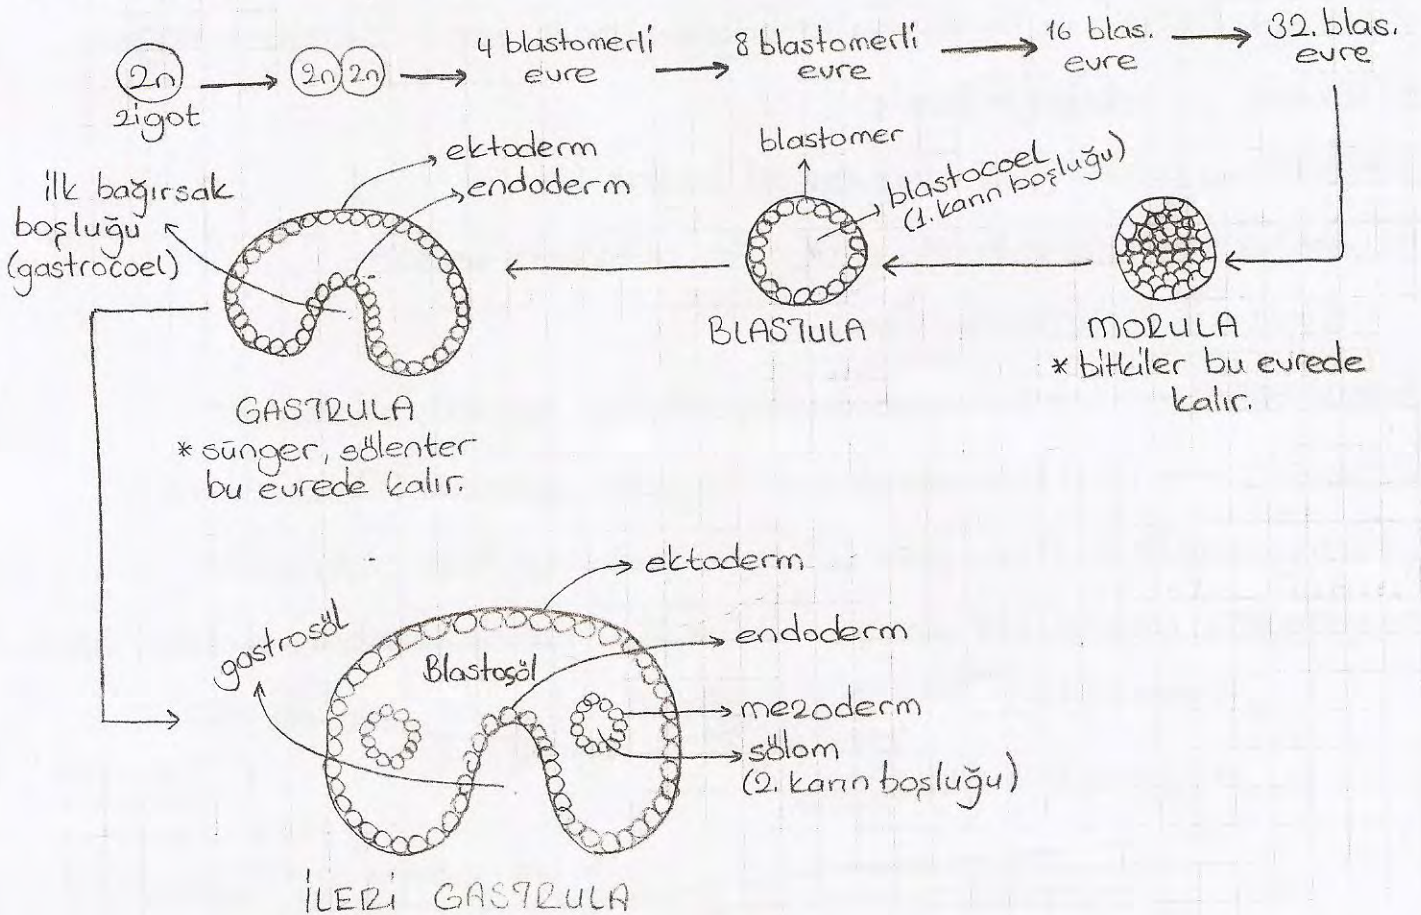 2n
zigot
2n 2n
4 blastomerli
evre
8 blastomerli
evre
16 blas.
evre
32. blas.
evre
MORULA
* bitkiler bu evrede
kalır.
blastomer
blastocoel
(1. karın boşluğu)
BLASTULA
ektoderm
endoderm
ilk bağırsak
boşluğu
(gastrocoel)
GASTRULA
* sünger, sölenter
bu evrede kalır.
ektoderm
endoderm
gastrosöl
Blastoşöl
mezoderm
sölom
(2. karın boşluğu)
İLERİ GASTRULA